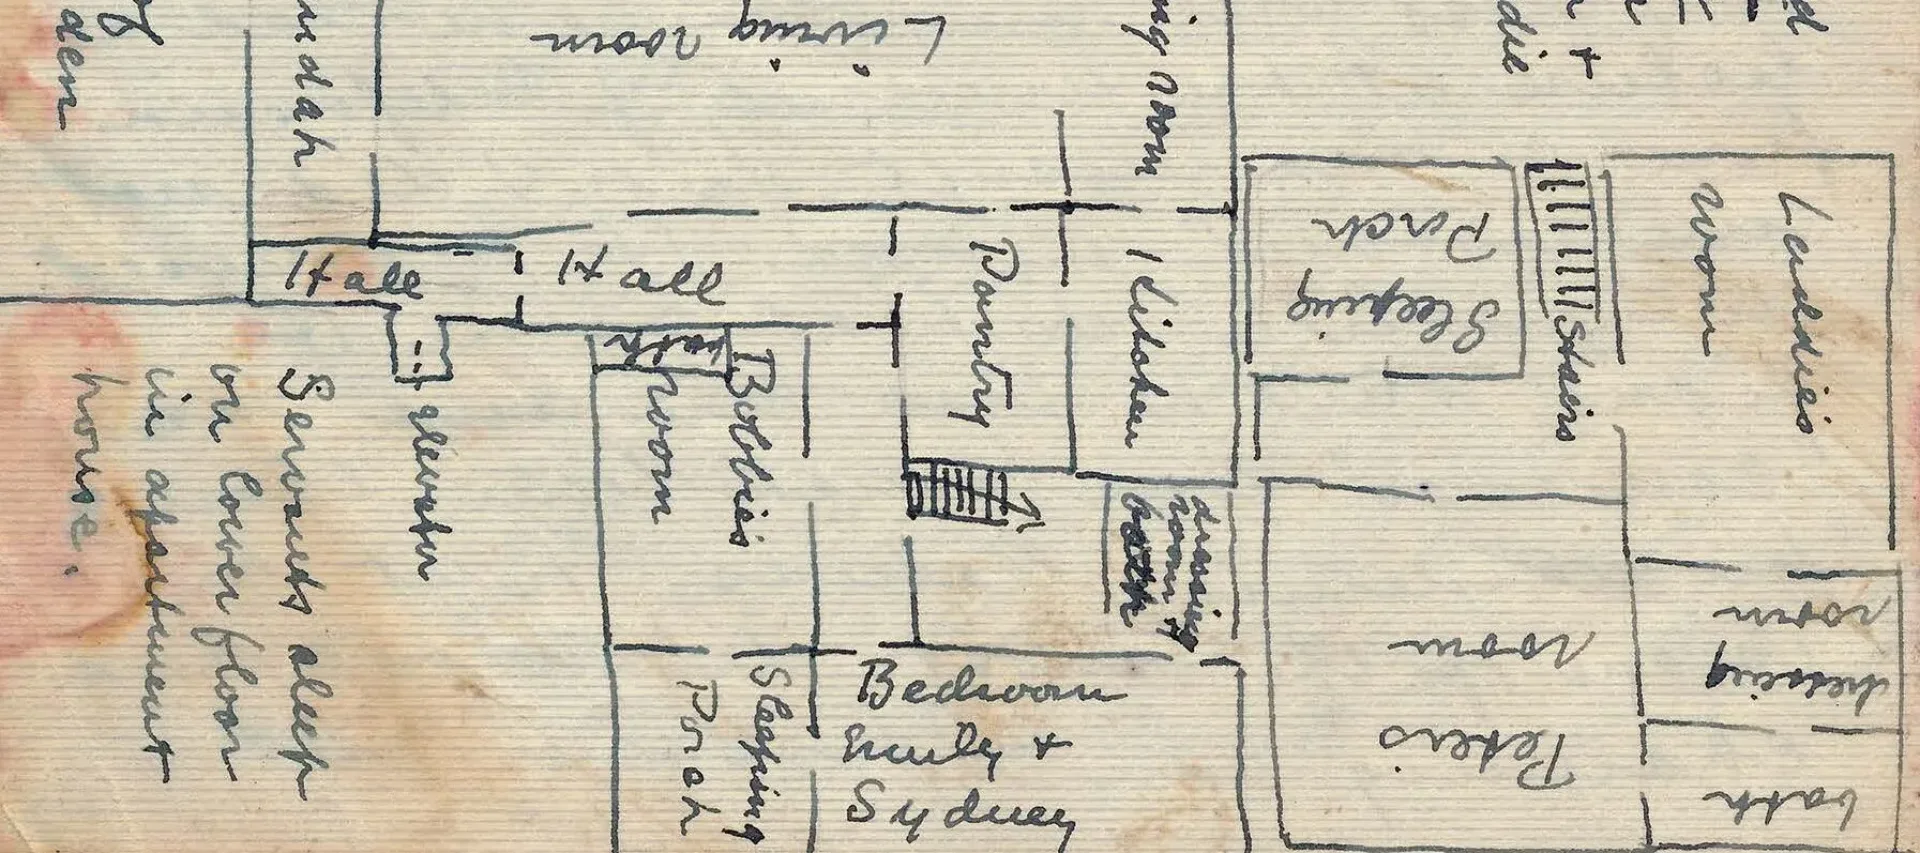 Living room
Hall
Hall
Pantry
Kitchen
Sleeping
Porch
Stairs
Laddie's
room
bath
Bobbie's
room
elevator
Servants sleep
on lower floor
in apartment
house.
dressing
room +
bath
Sleeping
Porch
Bedroom
Emily +
Sydney
Peter's
room
dressing
room
bath